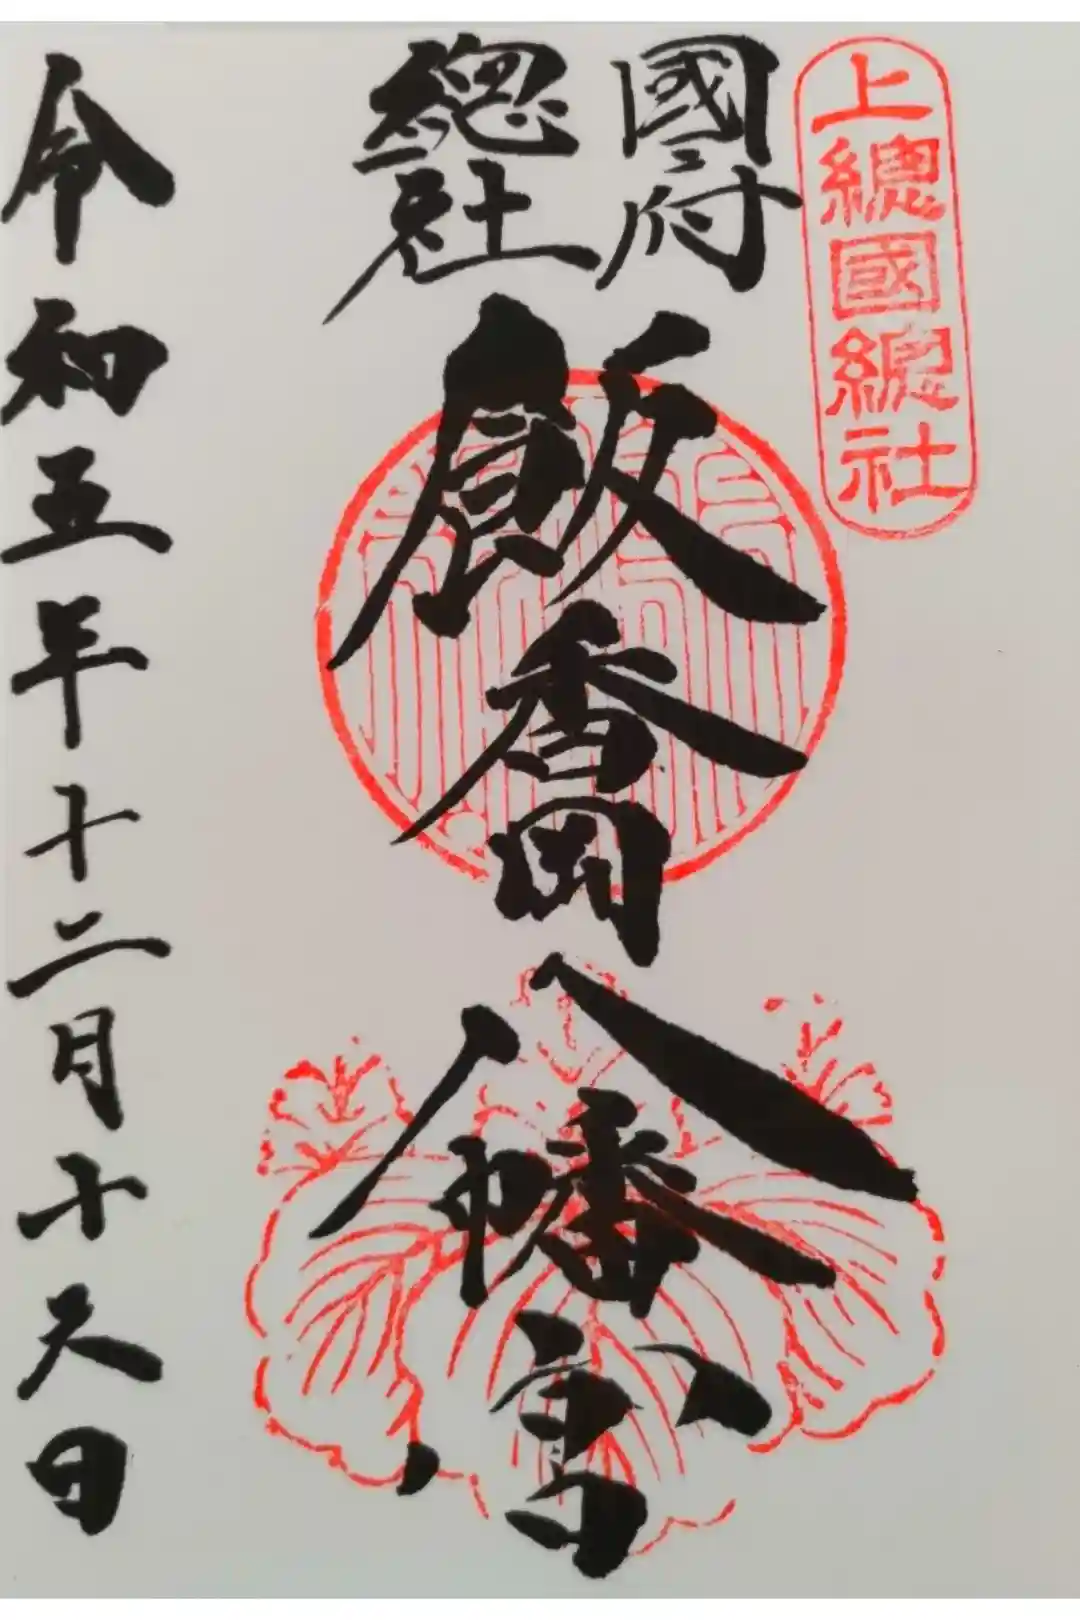 上總國總社
國府
總社
飯香岡八幡宮
令和五年十二月十六日